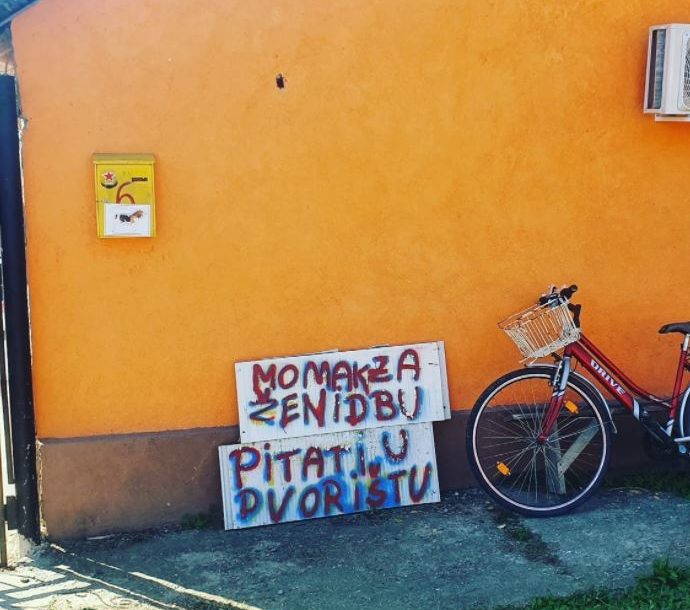 6
MOMAK ZA
ŽENIDBU
PITATI U
DVORIŠTU
DRIVE